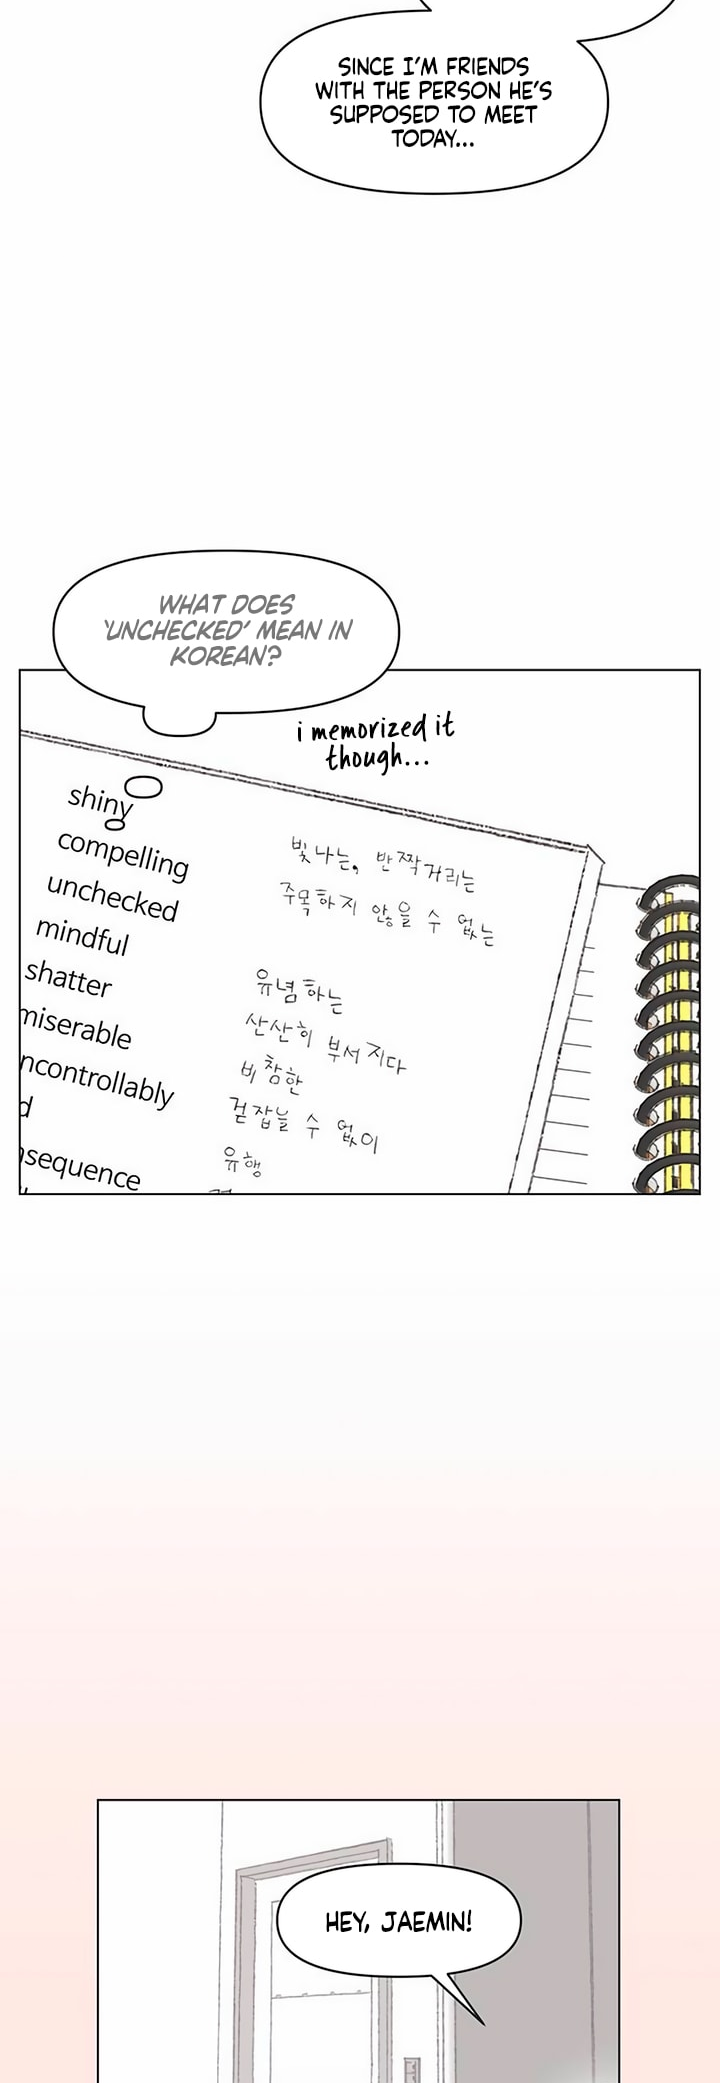 SINCE I'M FRIENDS
WITH THE PERSON HE'S
SUPPOSED TO MEET
TODAY...
WHAT DOES
'UNCHECKED' MEAN IN
KOREAN?
i memorized it
though...
shiny 빛나는, 반짝거리는
compelling 주목하지 않을 수 없는
unchecked
mindful 유념하는
shatter 산산히 부서지다
miserable 비참한
ncontrollably 걷잡을 수 없이
d 유행
nsequence
HEY, JAEMIN!